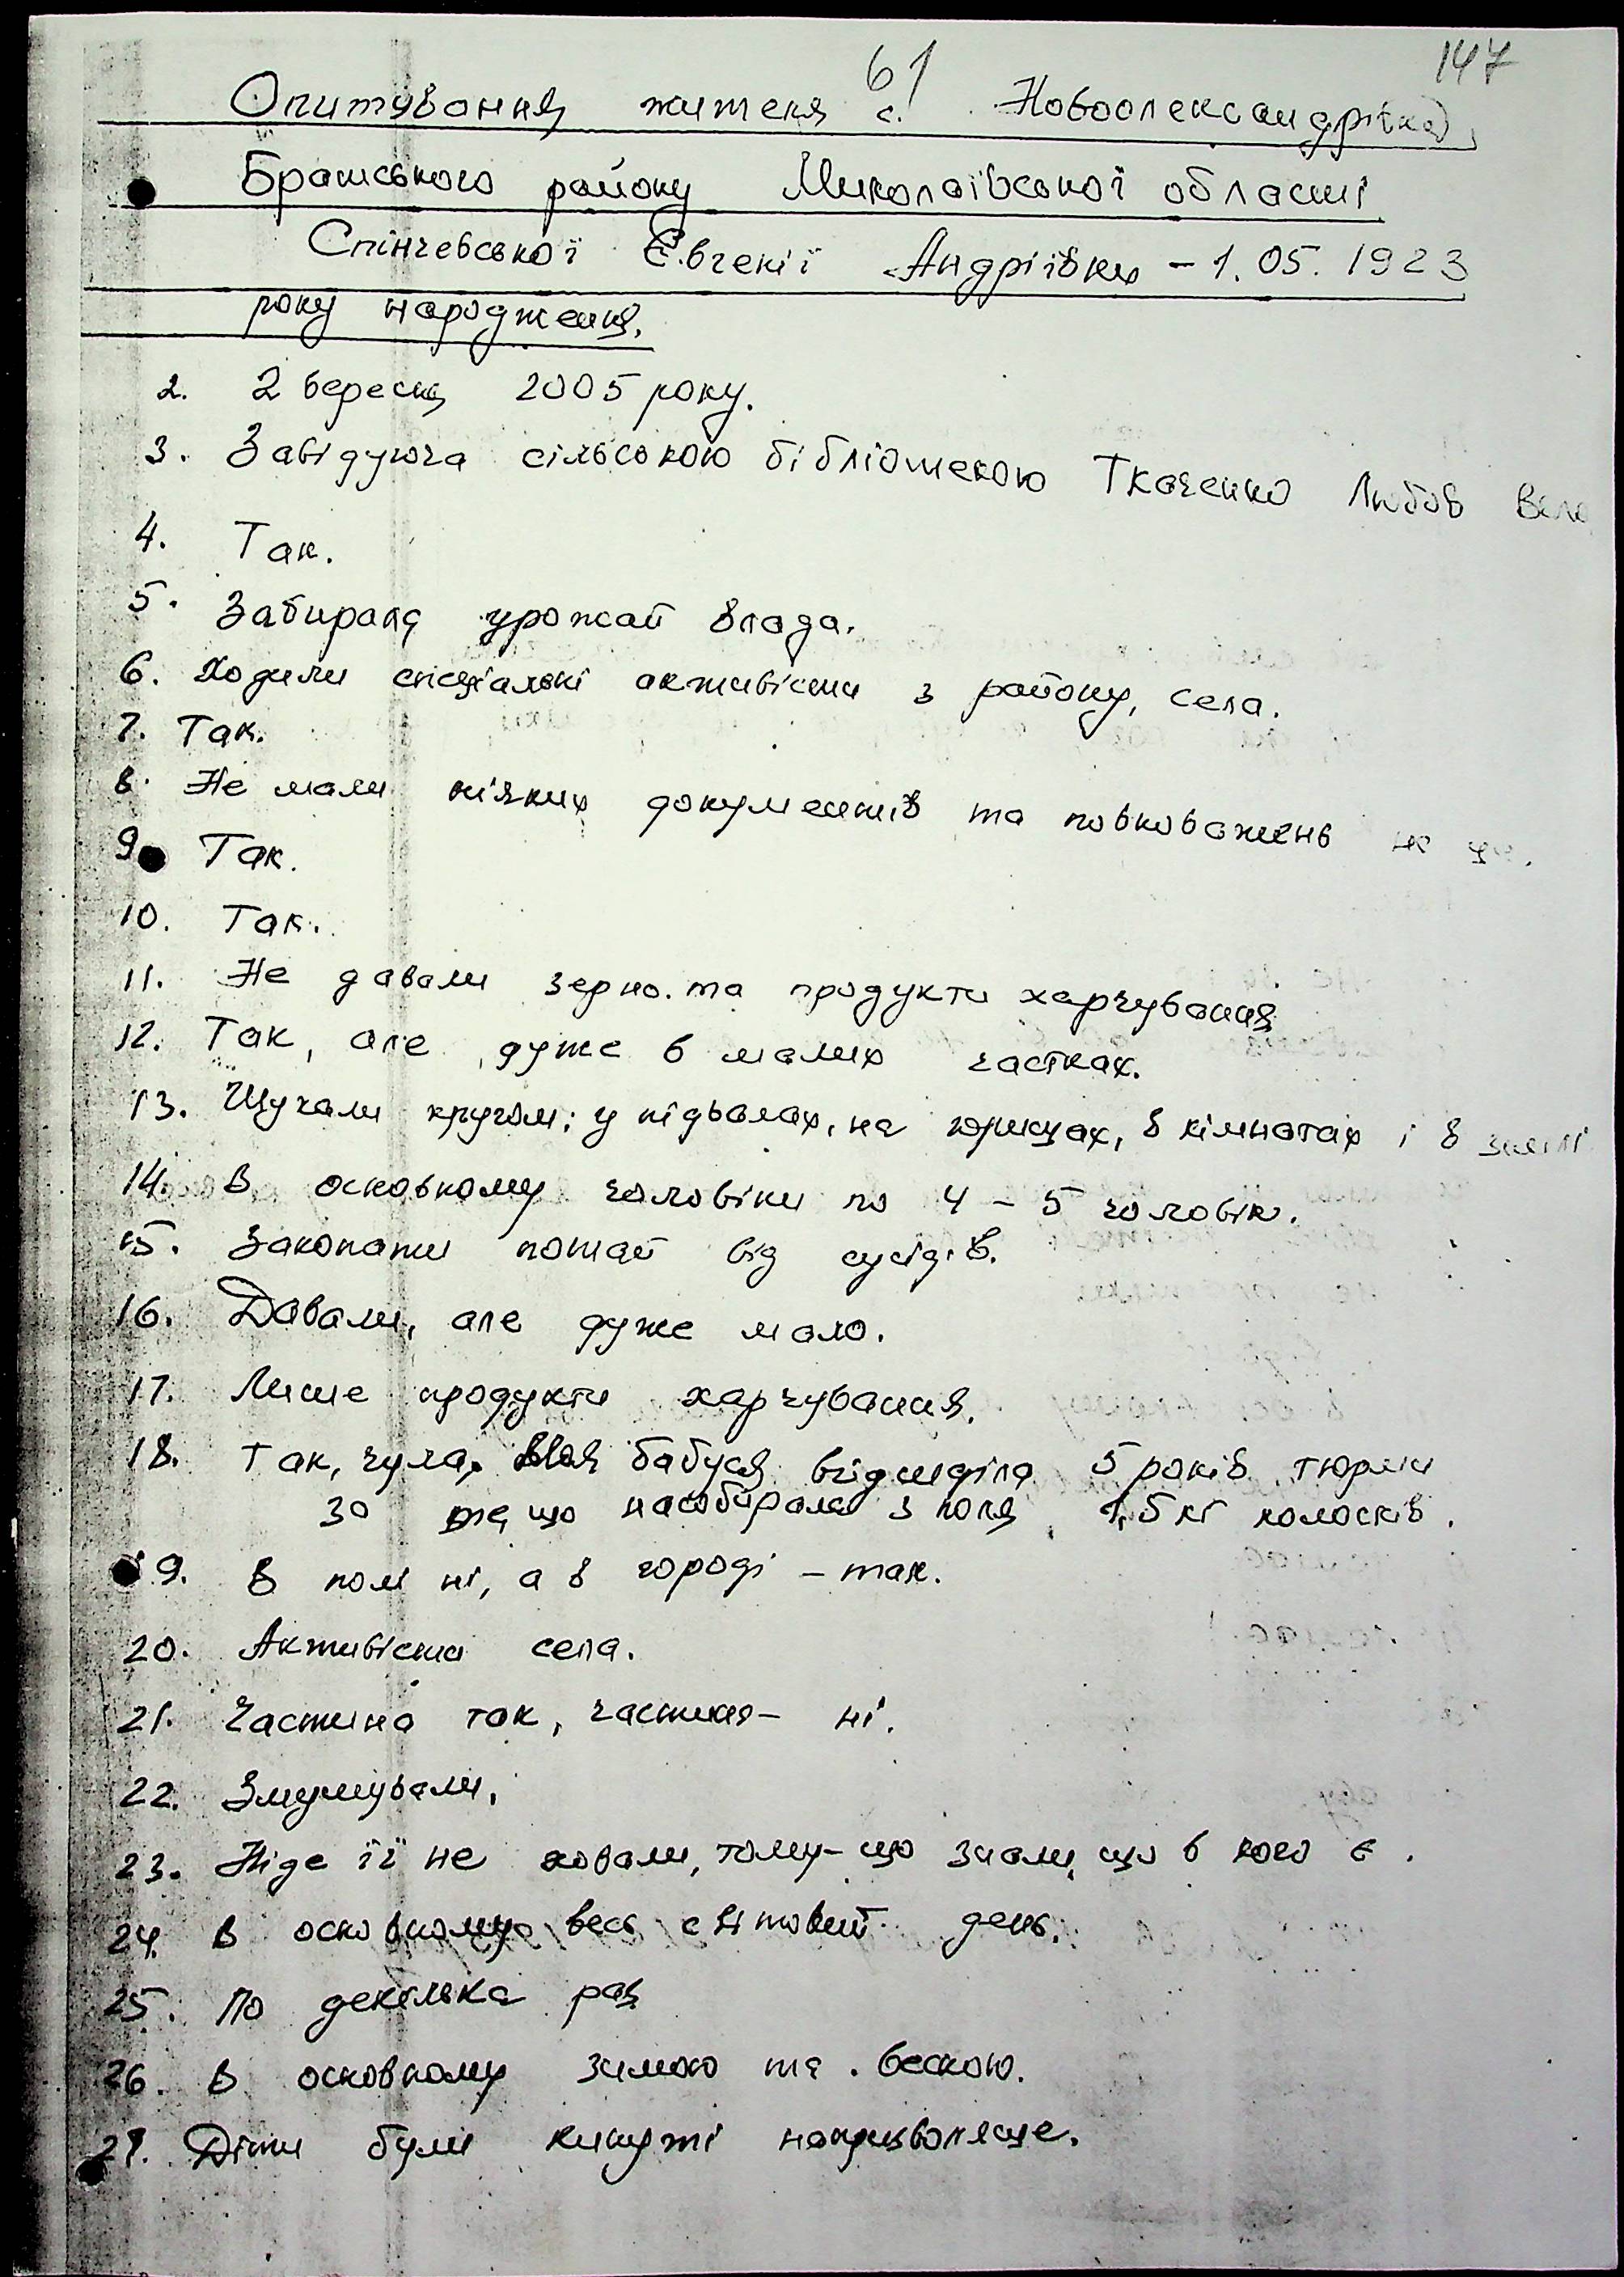 61
147
Опитування жителя с. Новоолександрівка,
Братського району Миколаївської області
Спінчевської Євгенії Андріївни - 1.05.1923
року народження.
2. 2 березня 2005 року.
3. Завідуюча сільською бібліотекою Ткаченко Любов
4. Так.
5. Забирала урожай влада.
6. Ходили спеціальні активісти з району, села.
7. Так.
8. Не мали ніяких документів та повноважень на
9. Так.
10. Так.
11. Не давали зерно та продукти харчування
12. Так, але дуже в малих частках.
13. Шукали кругом: у підвалах, на горищах, в кімнатах і в землі
14. В основному чоловіки по 4 - 5 чоловік.
15. Закопати потай від сусідів.
16. Давали, але дуже мало.
17. Лише продукти харчування.
18. Так, чула, моя бабуся відсиділа 5 років тюрми
за те, що назбирала з поля 1,5 кг колосків.
19. В полі ні, а в городі - так.
20. Активісти села.
21. Частина так, частина - ні.
22. Змушували.
23. Ніде її не ховали, тому-що знали, що в кого є.
24. В основному весь світовий день.
25. По декілька раз
26. В основному зимою та весною.
27. Діти були кинуті напризволяще.